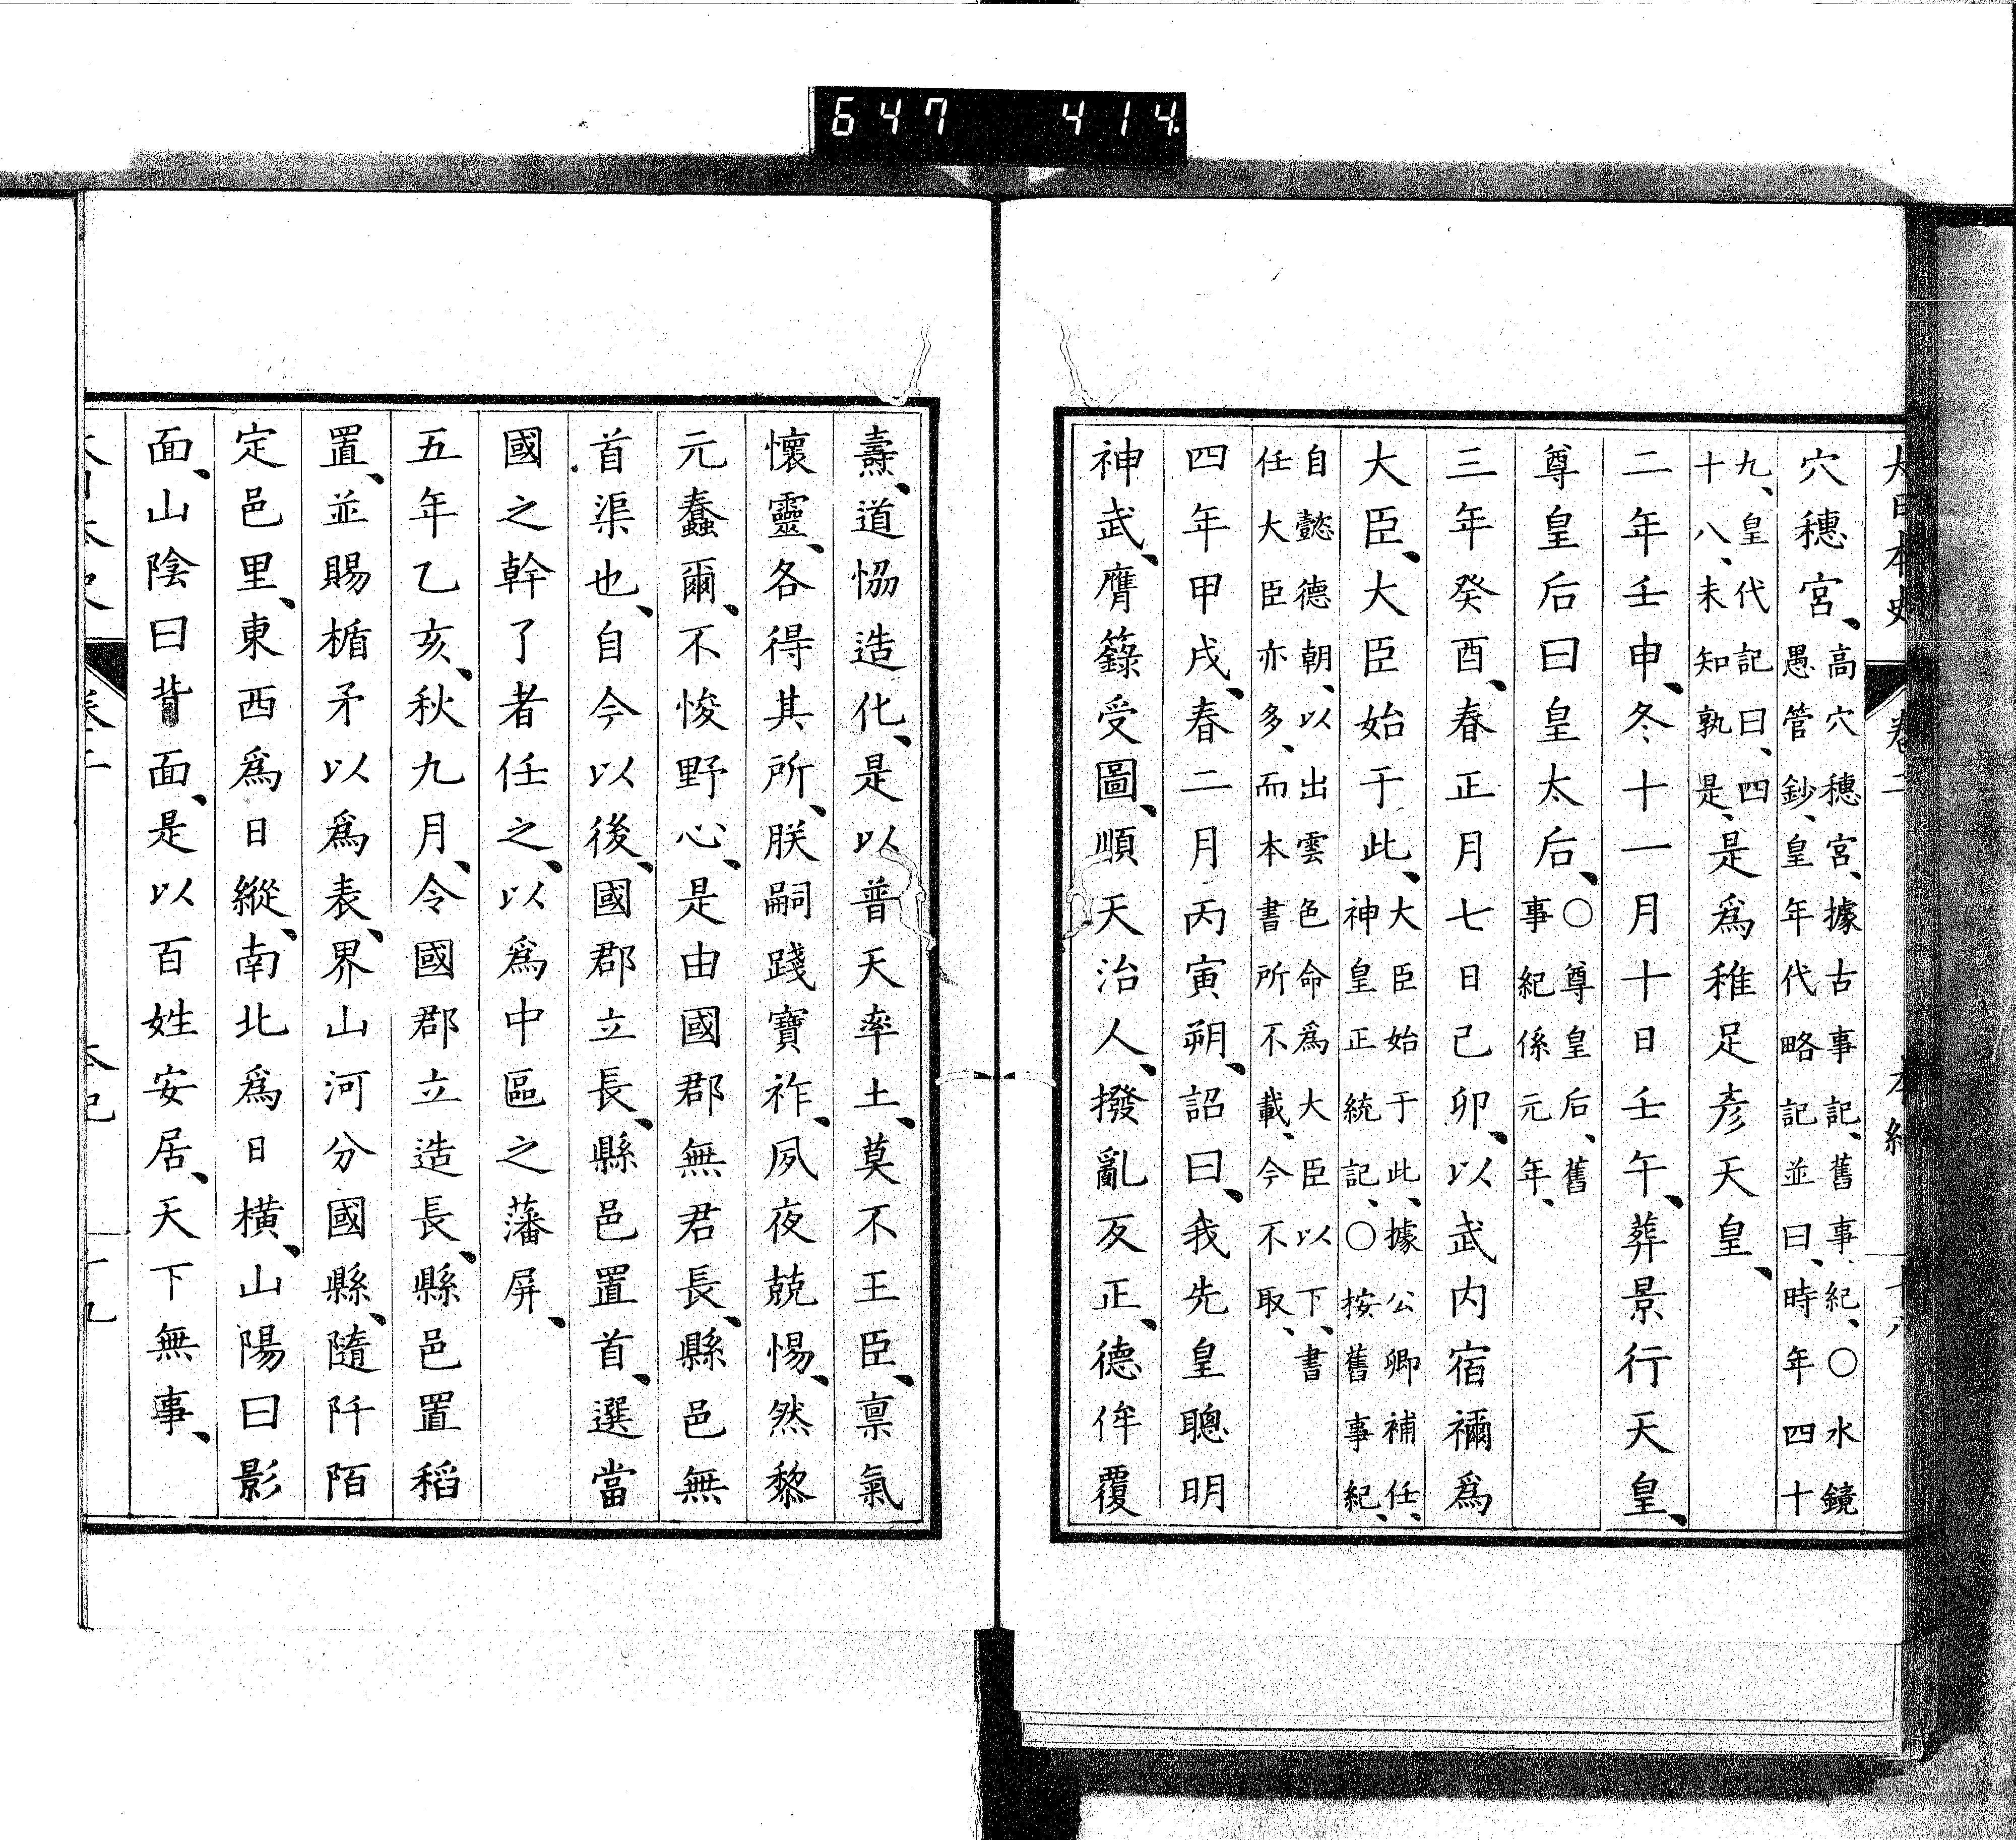 647 414
大日本史 卷二 本紀 十八
穴穗宮、高穴穗宮、據古事記、舊事紀、〇水鏡愚管鈔、皇年代略記並曰、時年四十
九、皇代記曰、四十八、未知孰是、是爲稚足彥天皇、
二年壬申、冬十一月十日壬午、葬景行天皇、
尊皇后曰皇太后、〇尊皇后、舊事紀係元年、
三年癸酉、春正月七日己卯、以武内宿禰爲
大臣、大臣始于此、大臣始于此、據公卿補任、神皇正統記、〇按舊事紀、
自懿德朝、以出雲色命爲大臣以下、書任大臣亦多、而本書所不載、今不取、
四年甲戌、春二月丙寅朔、詔曰、我先皇聰明
神武、膺籙受圖、順天治人、撥亂反正、德侔覆
燾、道恊造化、是以普天率土、莫不王臣、稟氣
懷靈、各得其所、朕嗣踐寶祚、夙夜兢惕、然黎
元蠢爾、不悛野心、是由國郡無君長、縣邑無
首渠也、自今以後、國郡立長、縣邑置首、選當
國之幹了者任之、以爲中區之藩屏、
五年乙亥、秋九月、令國郡立造長、縣邑置稻
置、並賜楯矛以爲表、界山河分國縣、隨阡陌
定邑里、東西爲日縱、南北爲日橫、山陽曰影
面、山陰曰背面、是以百姓安居、天下無事、